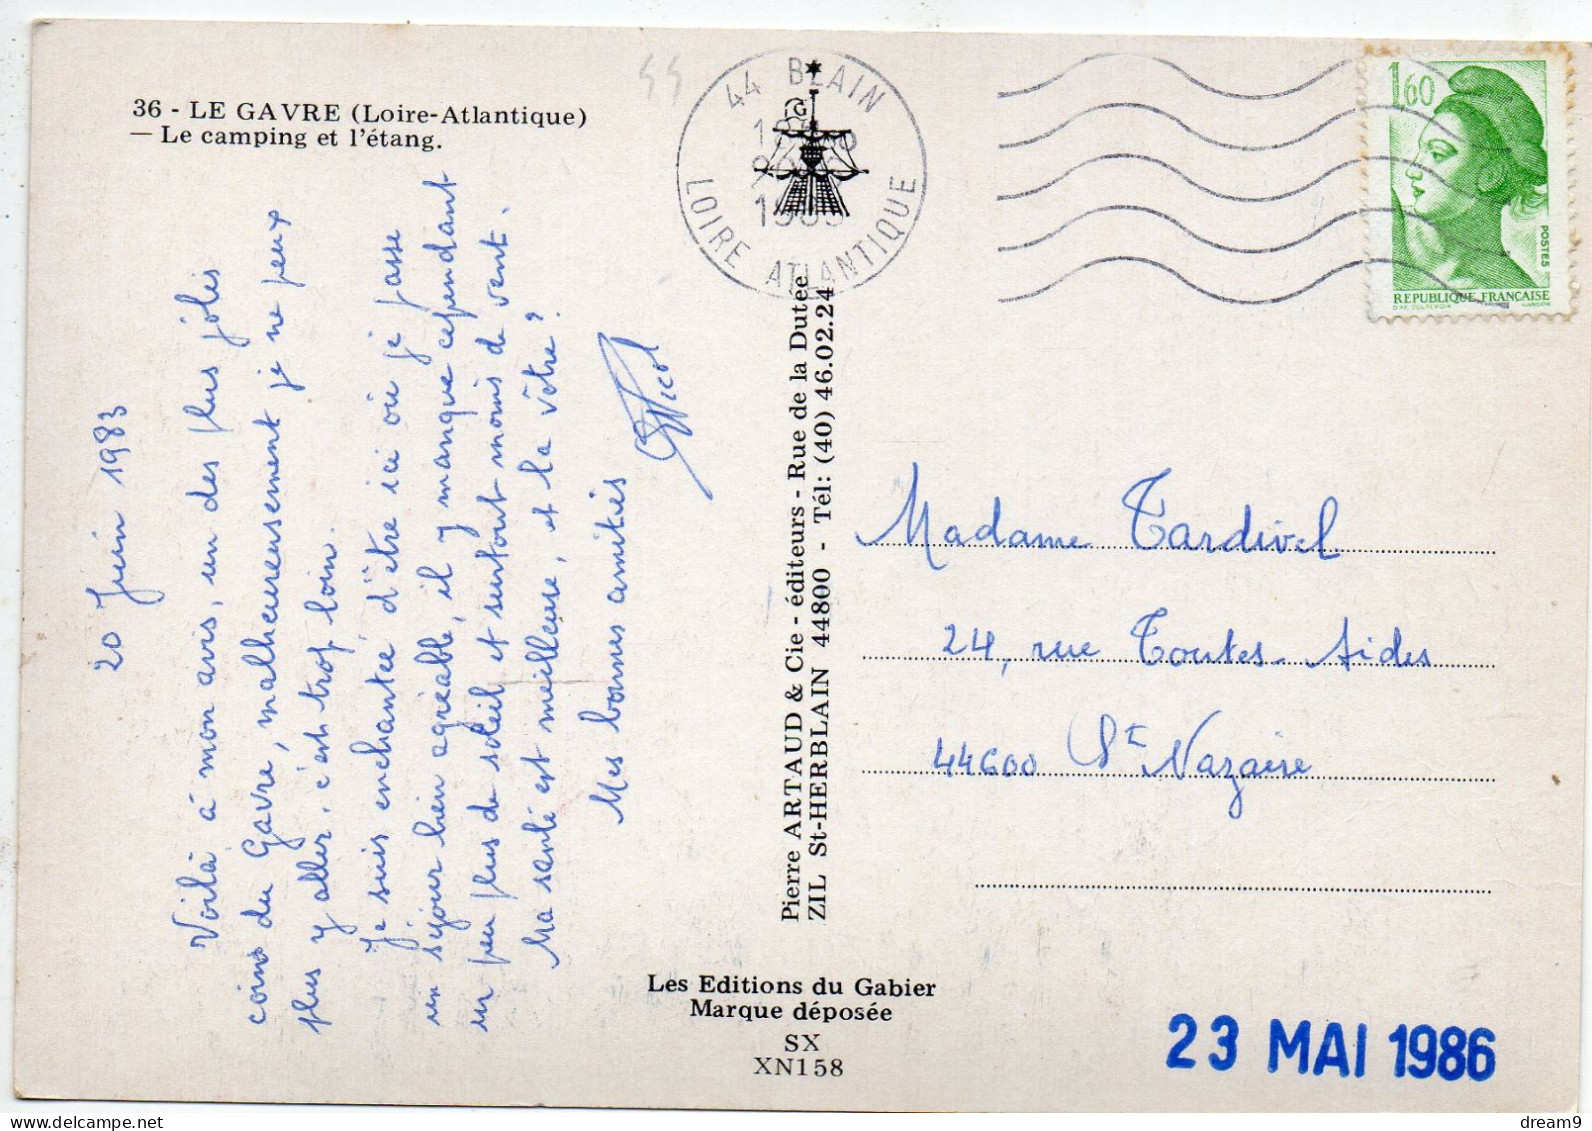 36 - LE GAVRE (Loire-Atlantique)
— Le camping et l'étang.
20 Juin 1983
Voilà à mon avis, un des plus jolis
coins du Gavre, malheureusement je ne peux
plus y aller. c'est trop loin.
Je suis enchantée d'être ici où je passe
un séjour bien agréable, il y manque cependant
un peu plus de soleil et surtout moins de vent.
Ma santé est meilleure, et la vôtre ?
Mes bonnes amitiés
44 BLAIN
LOIRE ATLANTIQUE
1,60
POSTES
REPUBLIQUE FRANÇAISE
Pierre ARTAUD & Cie - éditeurs - Rue de la Dutée
ZIL St-HERBLAIN 44800 - Tél: (40) 46.02.24
Madame Tardivel
24, rue Toutes-Aides
44600 St Nazaire
Les Editions du Gabier
Marque déposée
SX
XN158
23 MAI 1986
delcampe.net
dream9